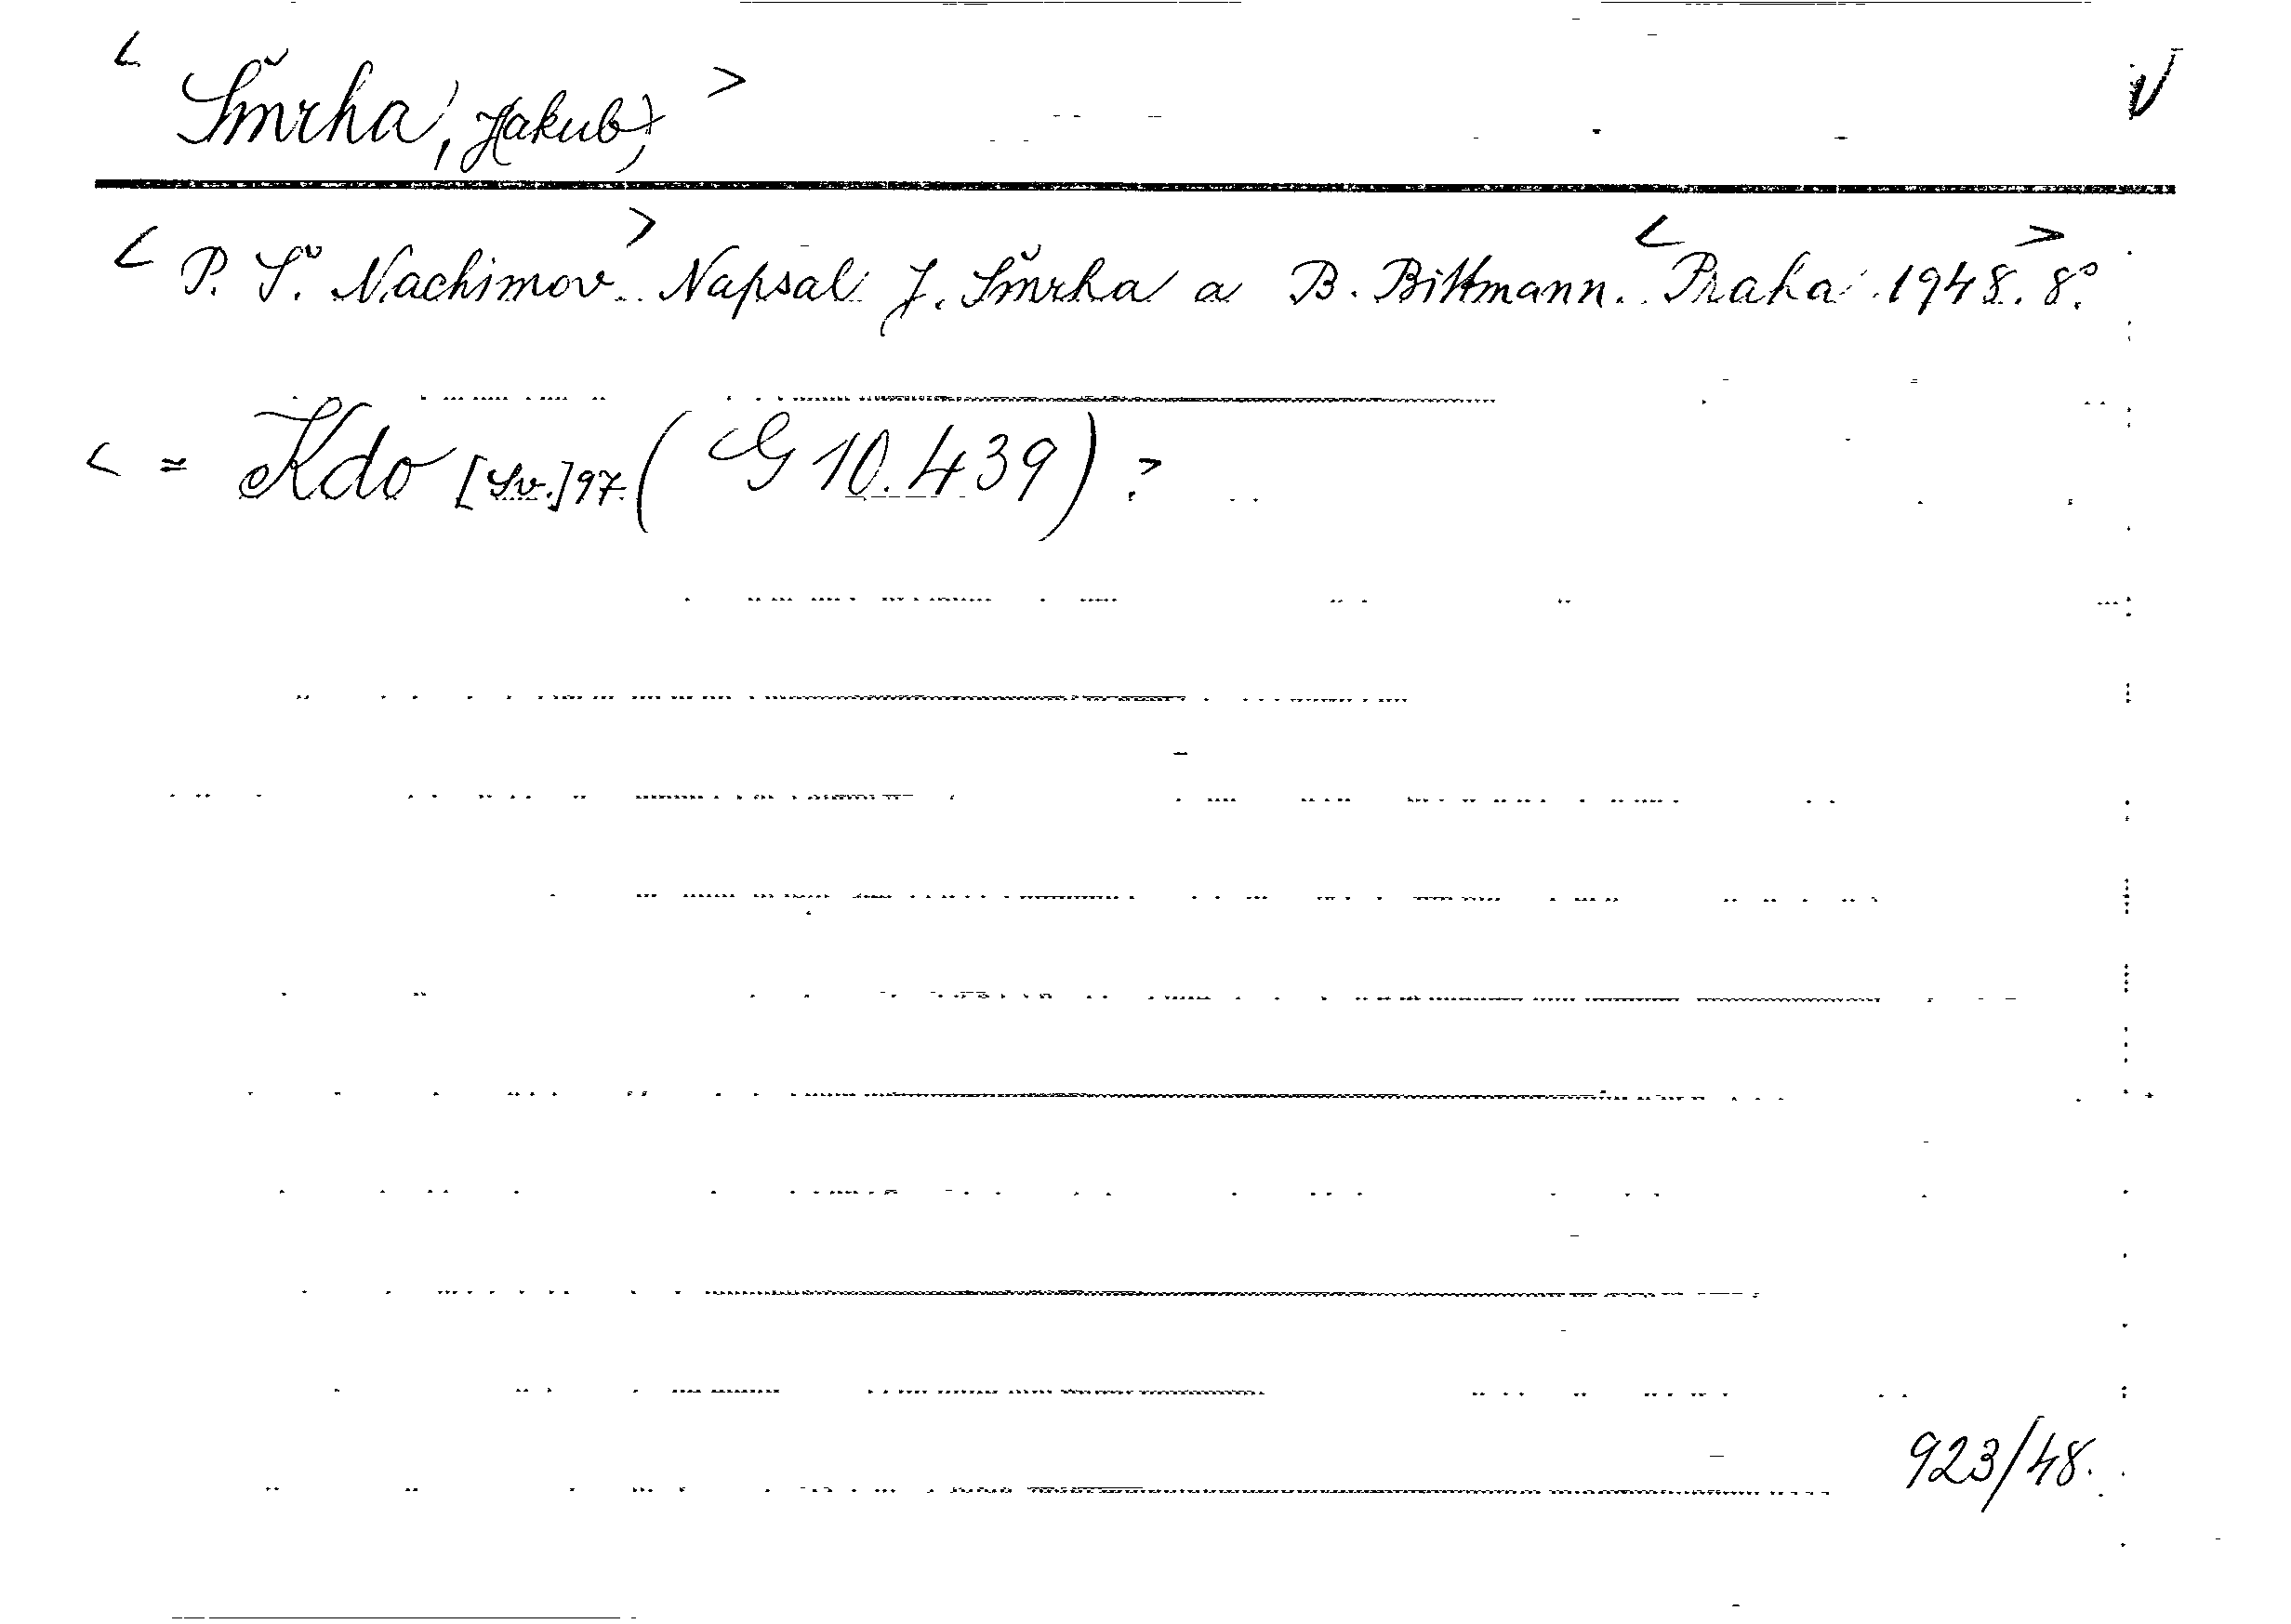 < Šmrha, Jakub, > V
< P. S. Nachimov. > Napsal J. Šmrha a B. Bittmann. < Praha 1948. 8°. >
< = Kdo [Sv.] 97. (G 10.439). >
923/48.